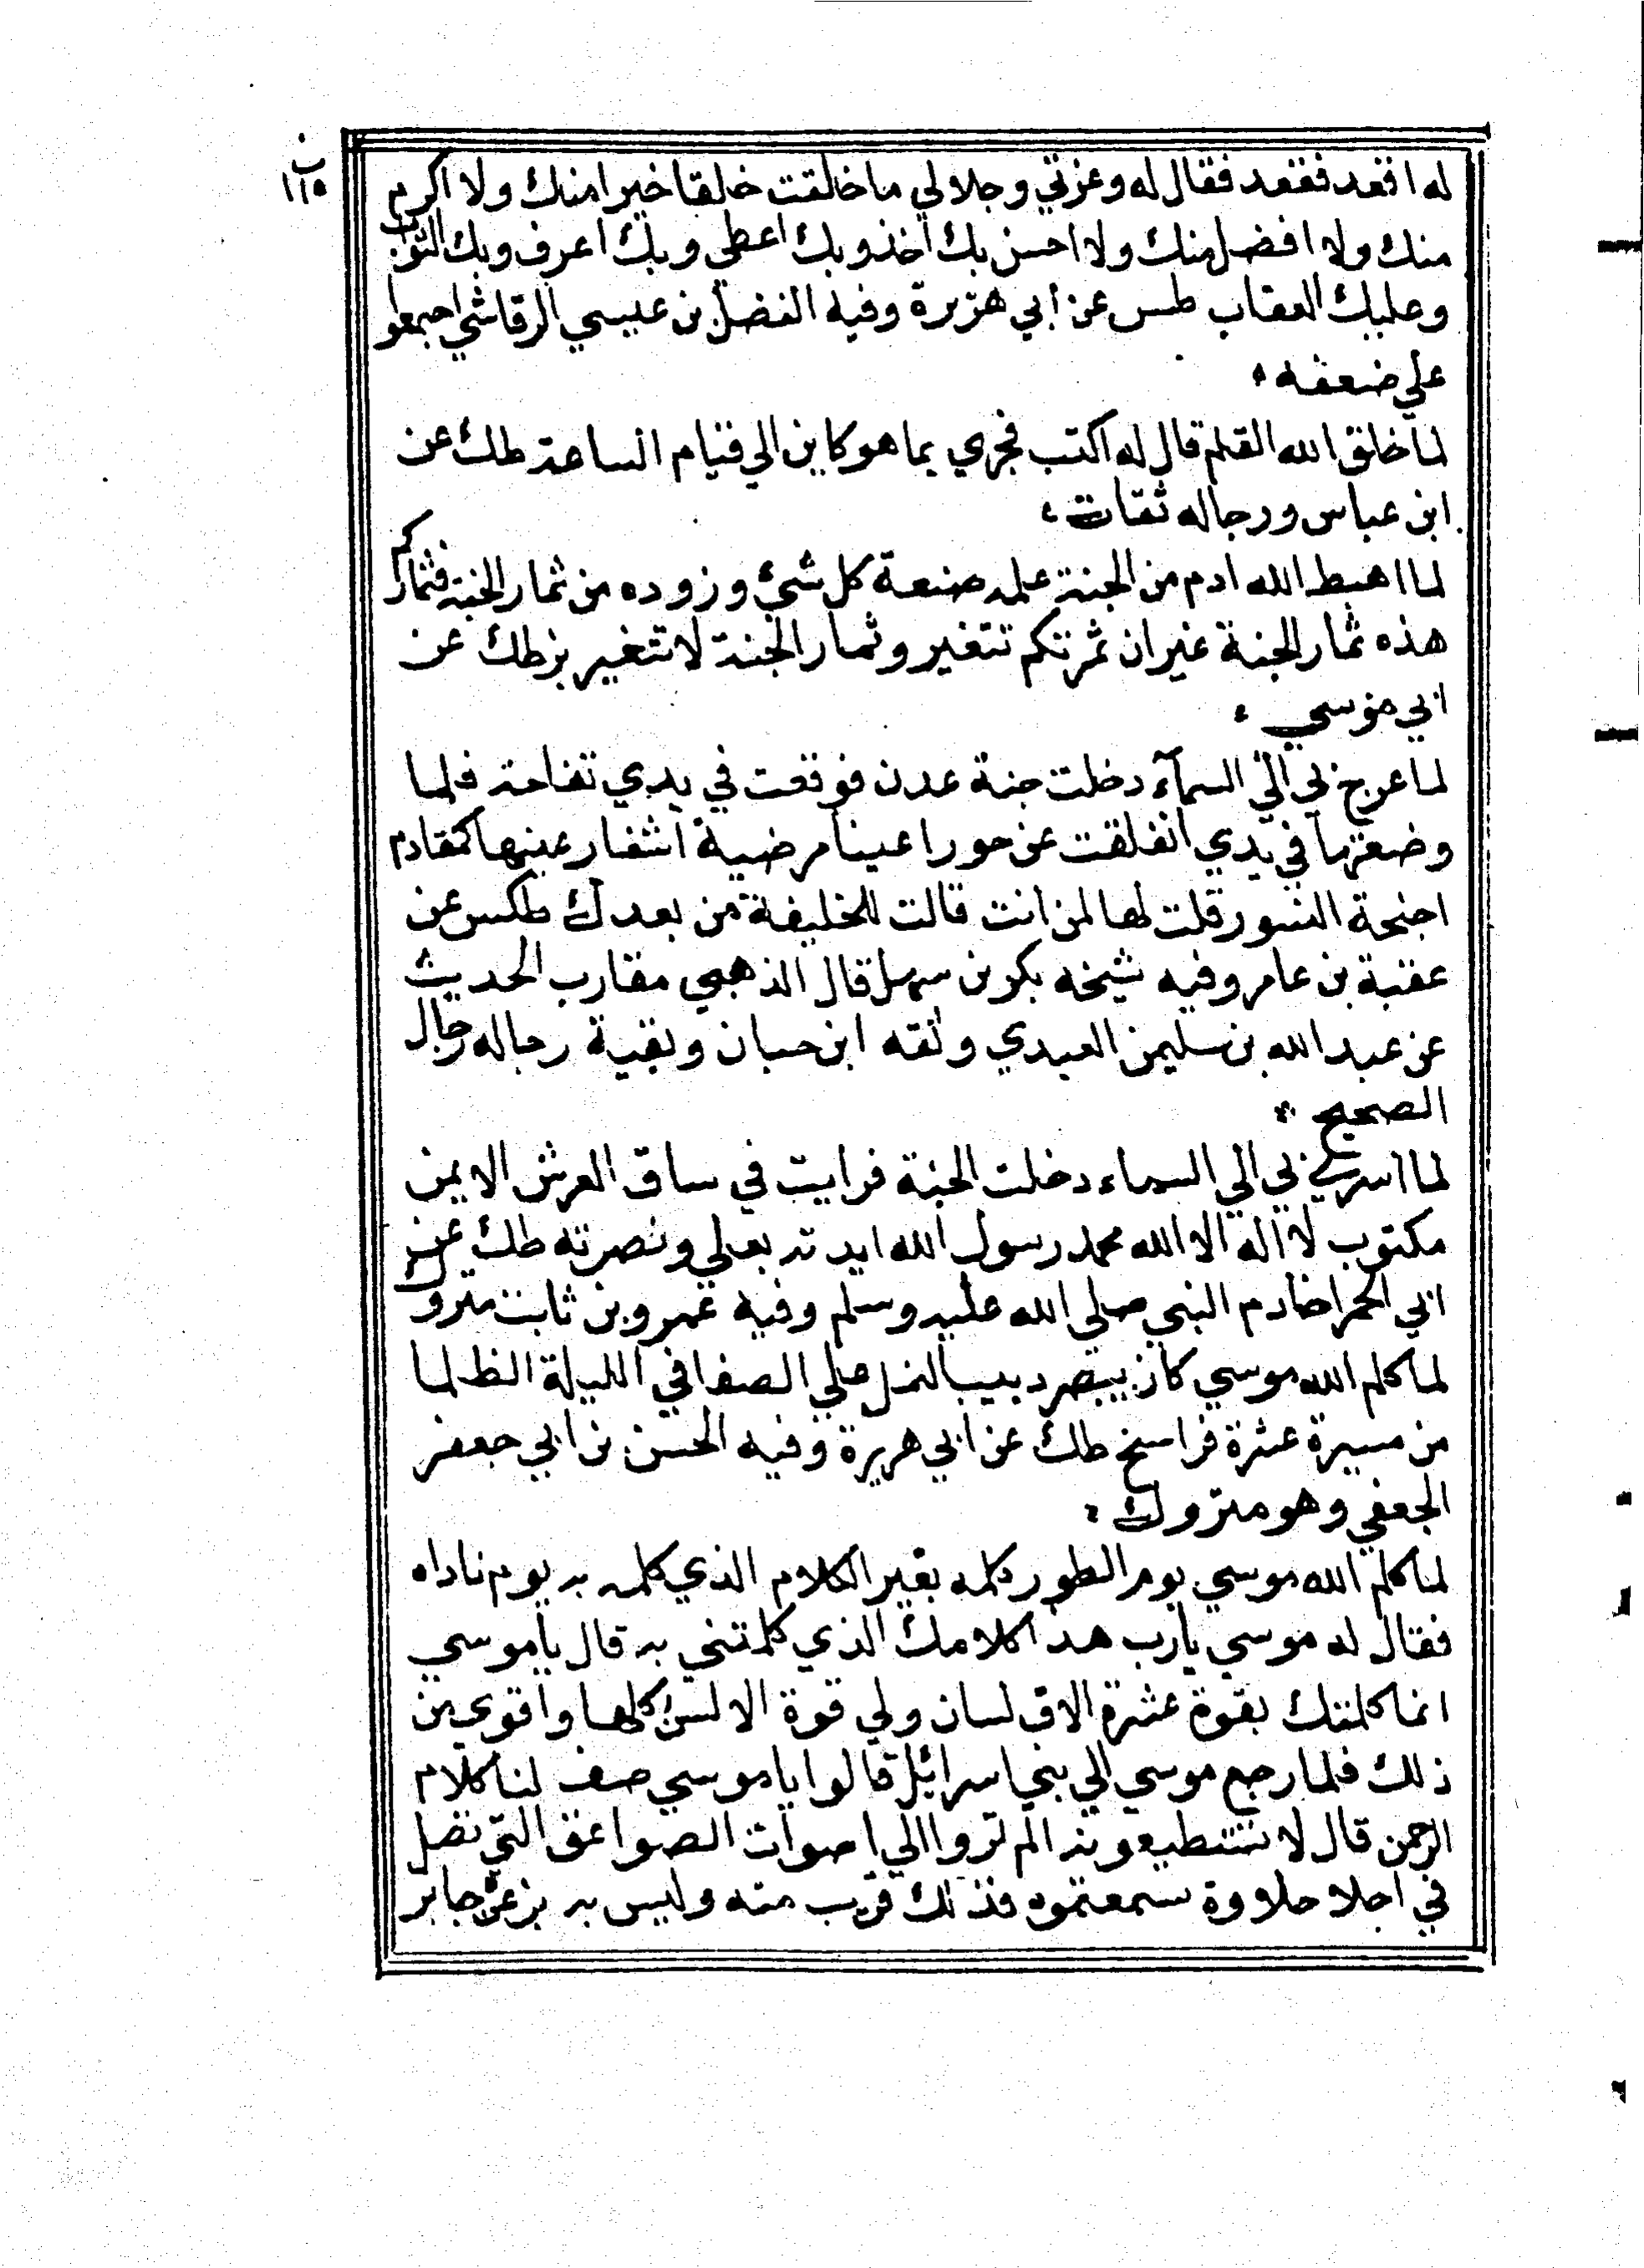 ب ١١٥
له اقعد فقعد فقال له وعزتي وجلالي ما خلقت خلقا خيرا منك ولا اكرم
منك ولا افضل منك ولا احسن بك اخذ وبك اعطي وبك اعرف وبك الثواب
وعليك العقاب طس عن أبي هريرة وفيه الفضل بن عيسي الرقاشي اجمعوا
علي ضعفه
لما خلق الله القلم قال له اكتب فجري بما هو كاين الي قيام الساعة طك عن
ابن عباس ورجاله ثقات
لما اهبط الله ادم من الجنة علمه صنعة كل شيئ وزوده من ثمار الجنة فثماركم
هذه ثمار الجنة غير ان ثمرتكم تتغير وثمار الجنة لا تتغير بز طك عن
ابي موسي
لما عرج بي الي السمآء دخلت جنة عدن فوقعت في يدي تفاحة فلما
وضعتها في يدي انفلقت عن حورا عينا مرضية اشفار عينيها كمقادم
اجنحة النسور قلت لها لمن انت قالت للخليفة من بعدك طكس عن
عقبة بن عامر وفيه شيخه بكر بن سهل قال الذهبي مقارب الحديث
عن عبد الله بن سليمن العبدي وثقه ابن حبان وبقية رجاله رجال
الصحيح
لما اسري بي الي السماء دخلت الجنة فرايت في ساق العرش الايمن
مكتوب لا اله الا الله محمد رسول الله ايدته بعلي ونصرته طك عن
ابي الحمرا خادم النبي صلي الله عليه وسلم وفيه عمرو بن ثابت متروك
لما كلم الله موسي كان يبصر دبيب النمل علي الصفا في الليلة الظلما
من مسيرة عشرة فراسخ طك عن ابي هريرة وفيه الحسن بن ابي جعفر
الجعفي وهو متروك
لما كلم الله موسي يوم الطور كلمه بغير الكلام الذي كلمه به يوم ناداه
فقال له موسي يا رب هذا كلامك الذي كلمتني به قال يا موسي
انما كلمتك بقوة عشرة الاف لسان ولي قوة الالسن كلها واقوي من
ذلك فلما رجع موسي الي بني اسرائيل قالوا يا موسي صف لنا كلام
الرحمن قال لا تستطيعونه الم تروا الي اصوات الصواعق التي تقتل
في احلا حلاوة سمعتموه فذلك قريب منه وليس به بز عن جابر